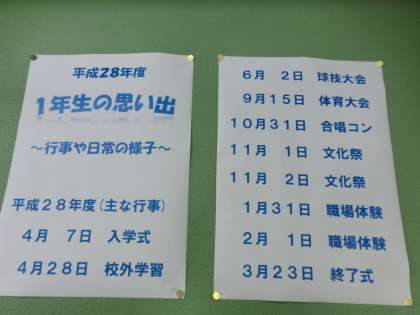 平成28年度
1年生の思い出
～行事や日常の様子～
平成２８年度(主な行事)
４月　７日　入学式
４月２８日　校外学習
６月　２日　球技大会
９月１５日　体育大会
１０月３１日　合唱コン
１１月　１日　文化祭
１１月　２日　文化祭
１月３１日　職場体験
２月　１日　職場体験
３月２３日　終了式